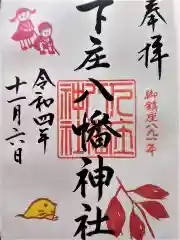 奉拝
御鎮座八九一年
下庄八幡神社
令和四年
十二月六日